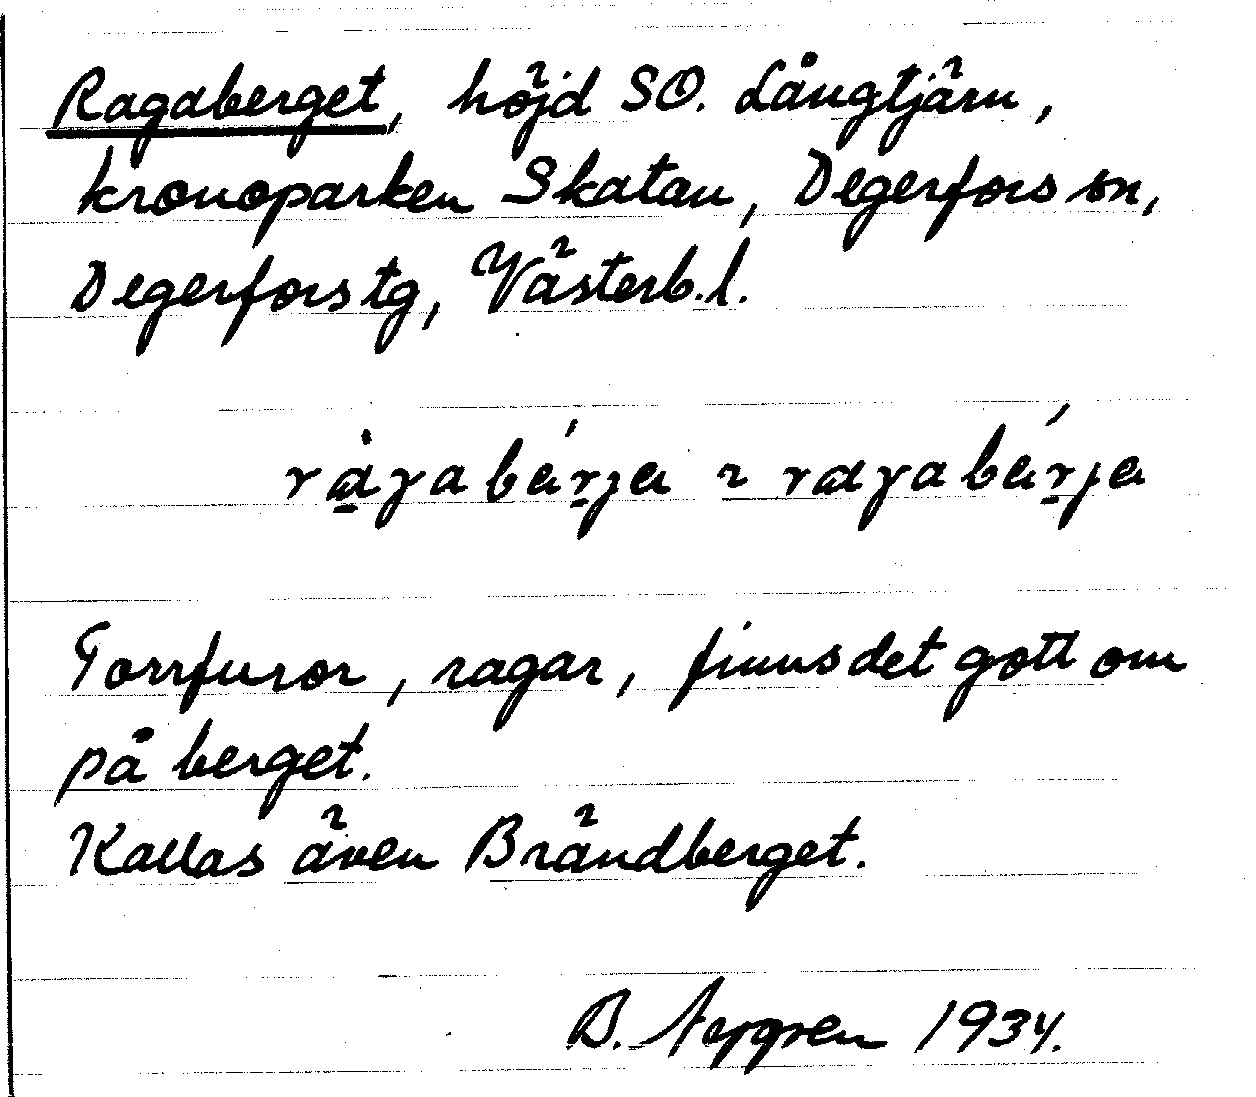 Ragaberget, höjd SO. Långtjärn,
kronoparken Skatan, Degerfors sn,
Degerfors tg, Västerb.l.
Torrfuror, ragar, finns det gott om
på berget.
Kallas även Brändberget.
B. 1934.